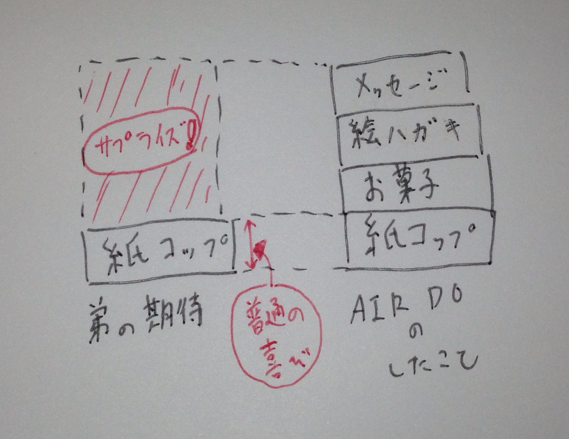 サプライズ!
紙コップ
弟の期待
普通の
喜び
メッセージ
絵ハガキ
お菓子
紙コップ
AIR DO
の
したこと